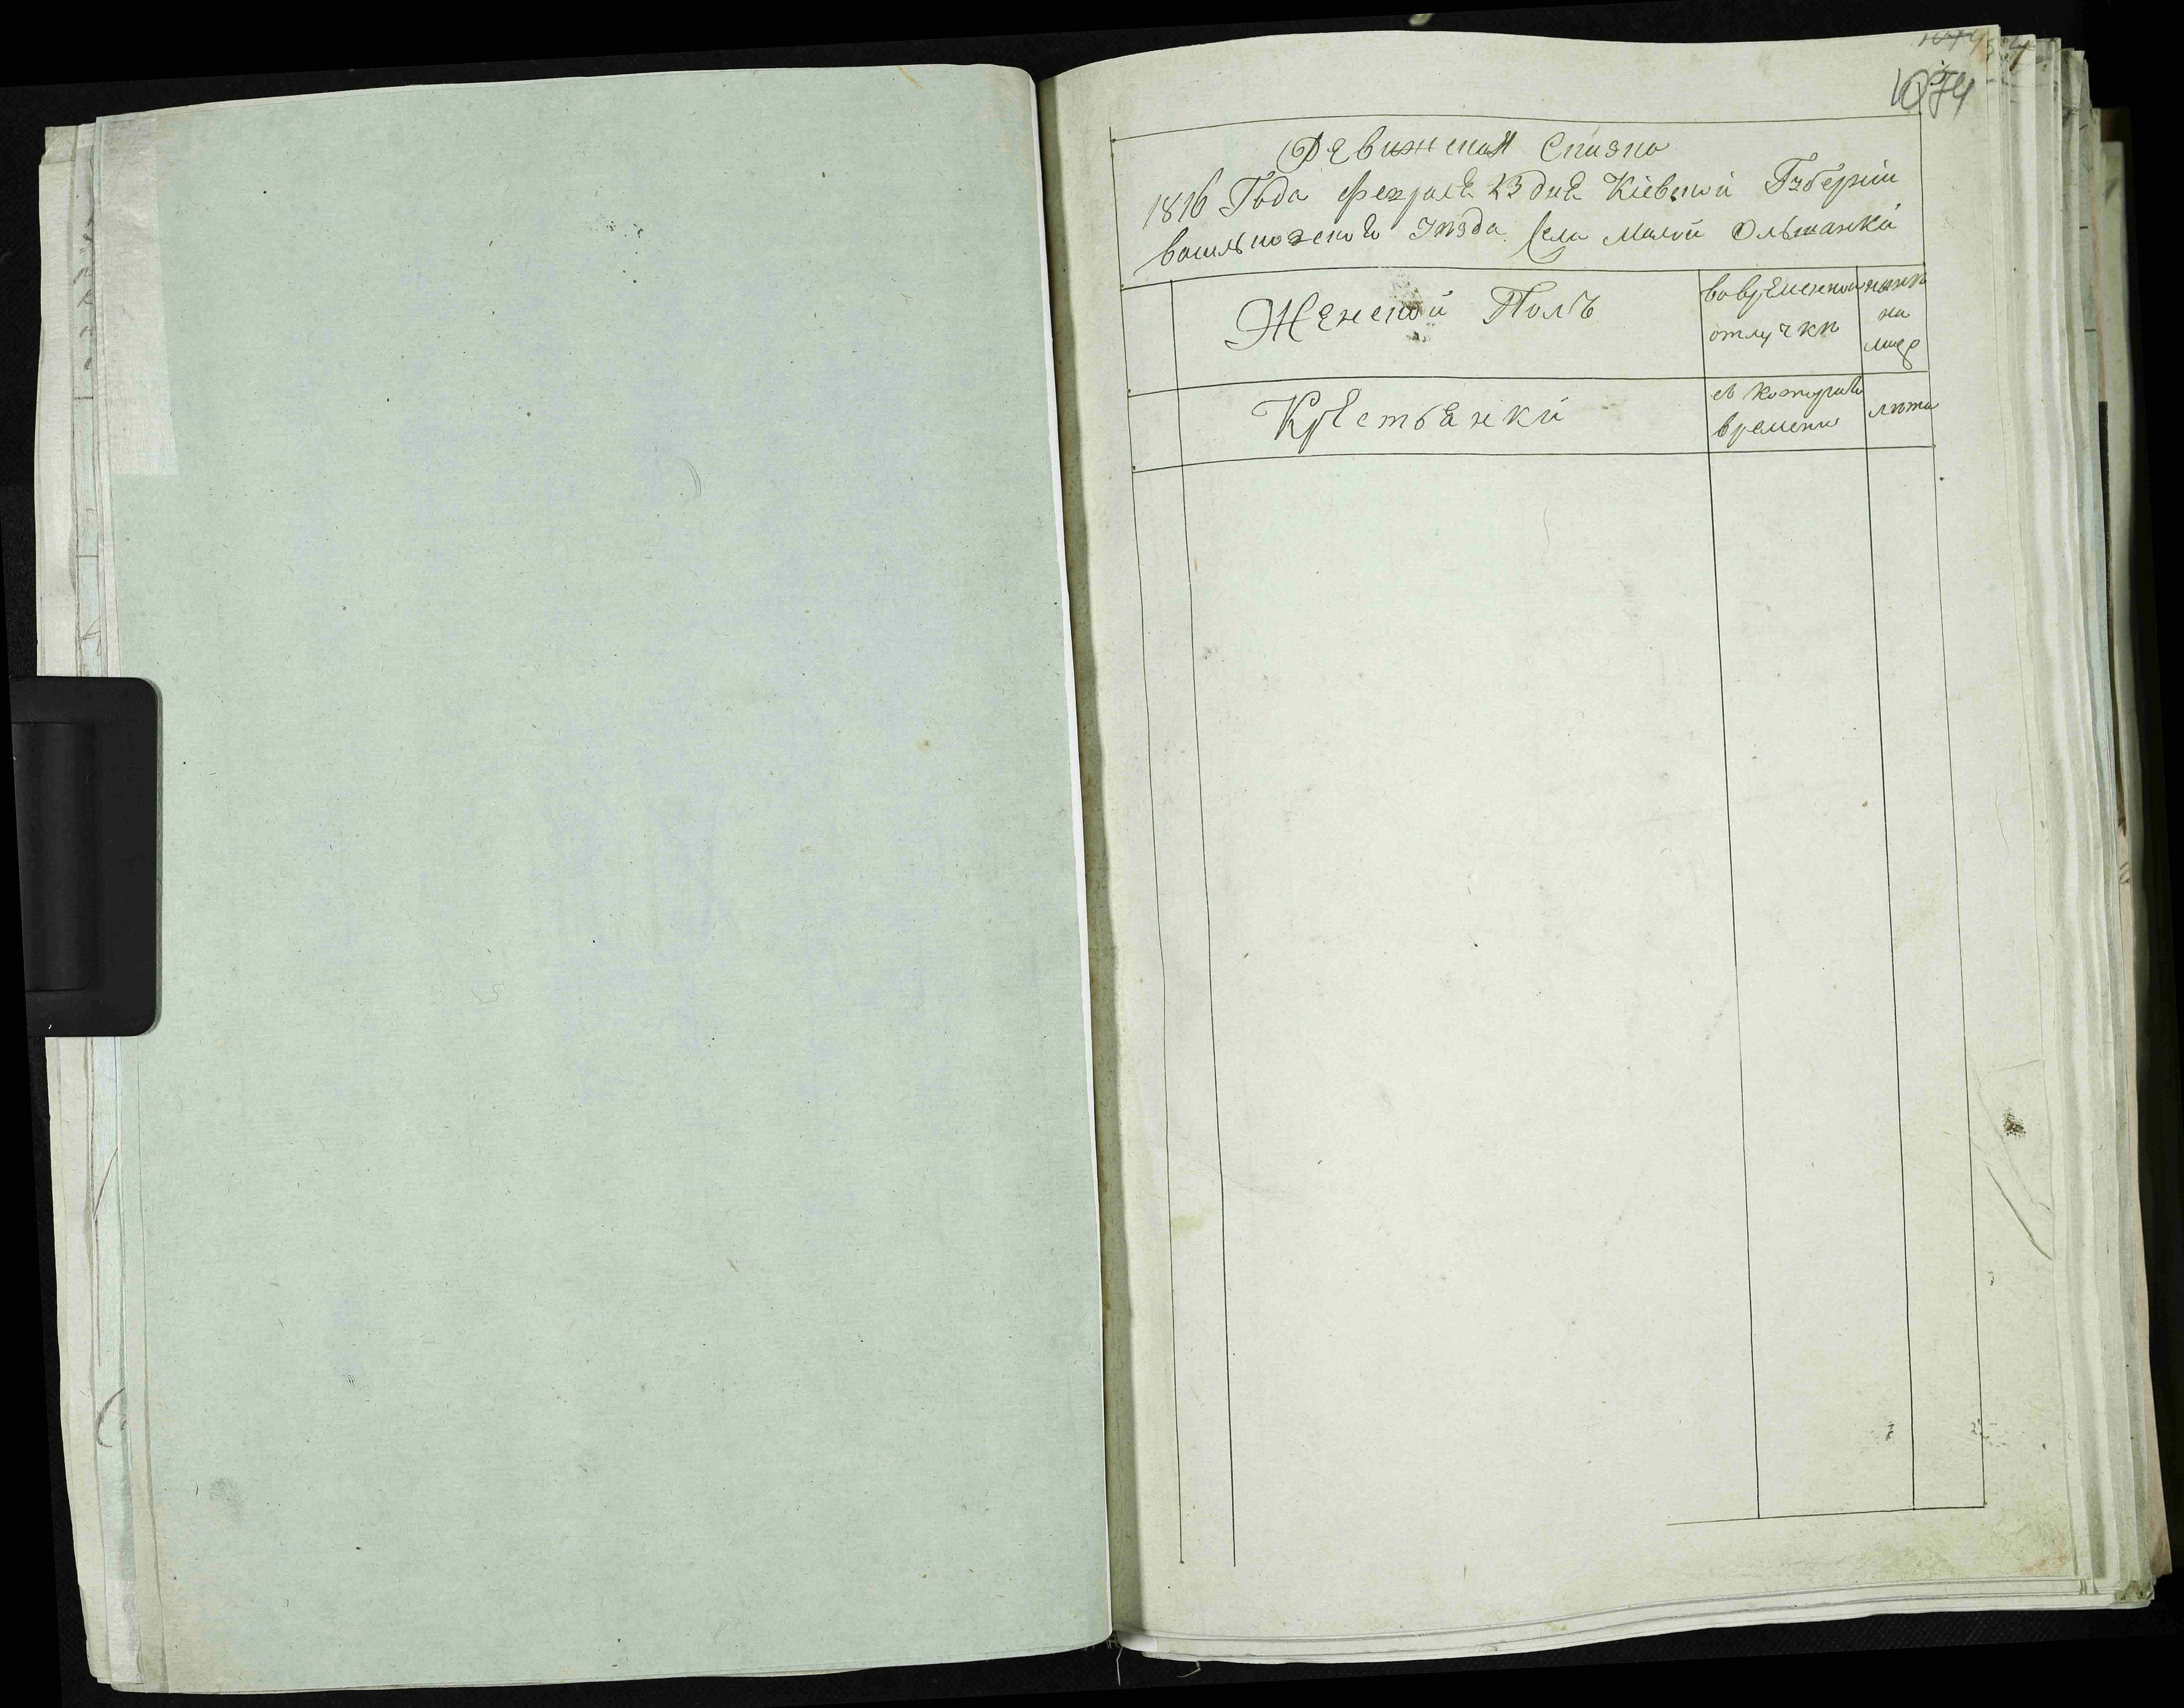 1074
Ревижская Сказка
1816 Года Февраля 23 дня Кіевской Губерніи
васильковского Уѣзда Села Малой Ольшанки
Женской Полъ
во временной отлучкѣ
нынѣ на лицо
Крестьянки
съ которого времени
лѣта